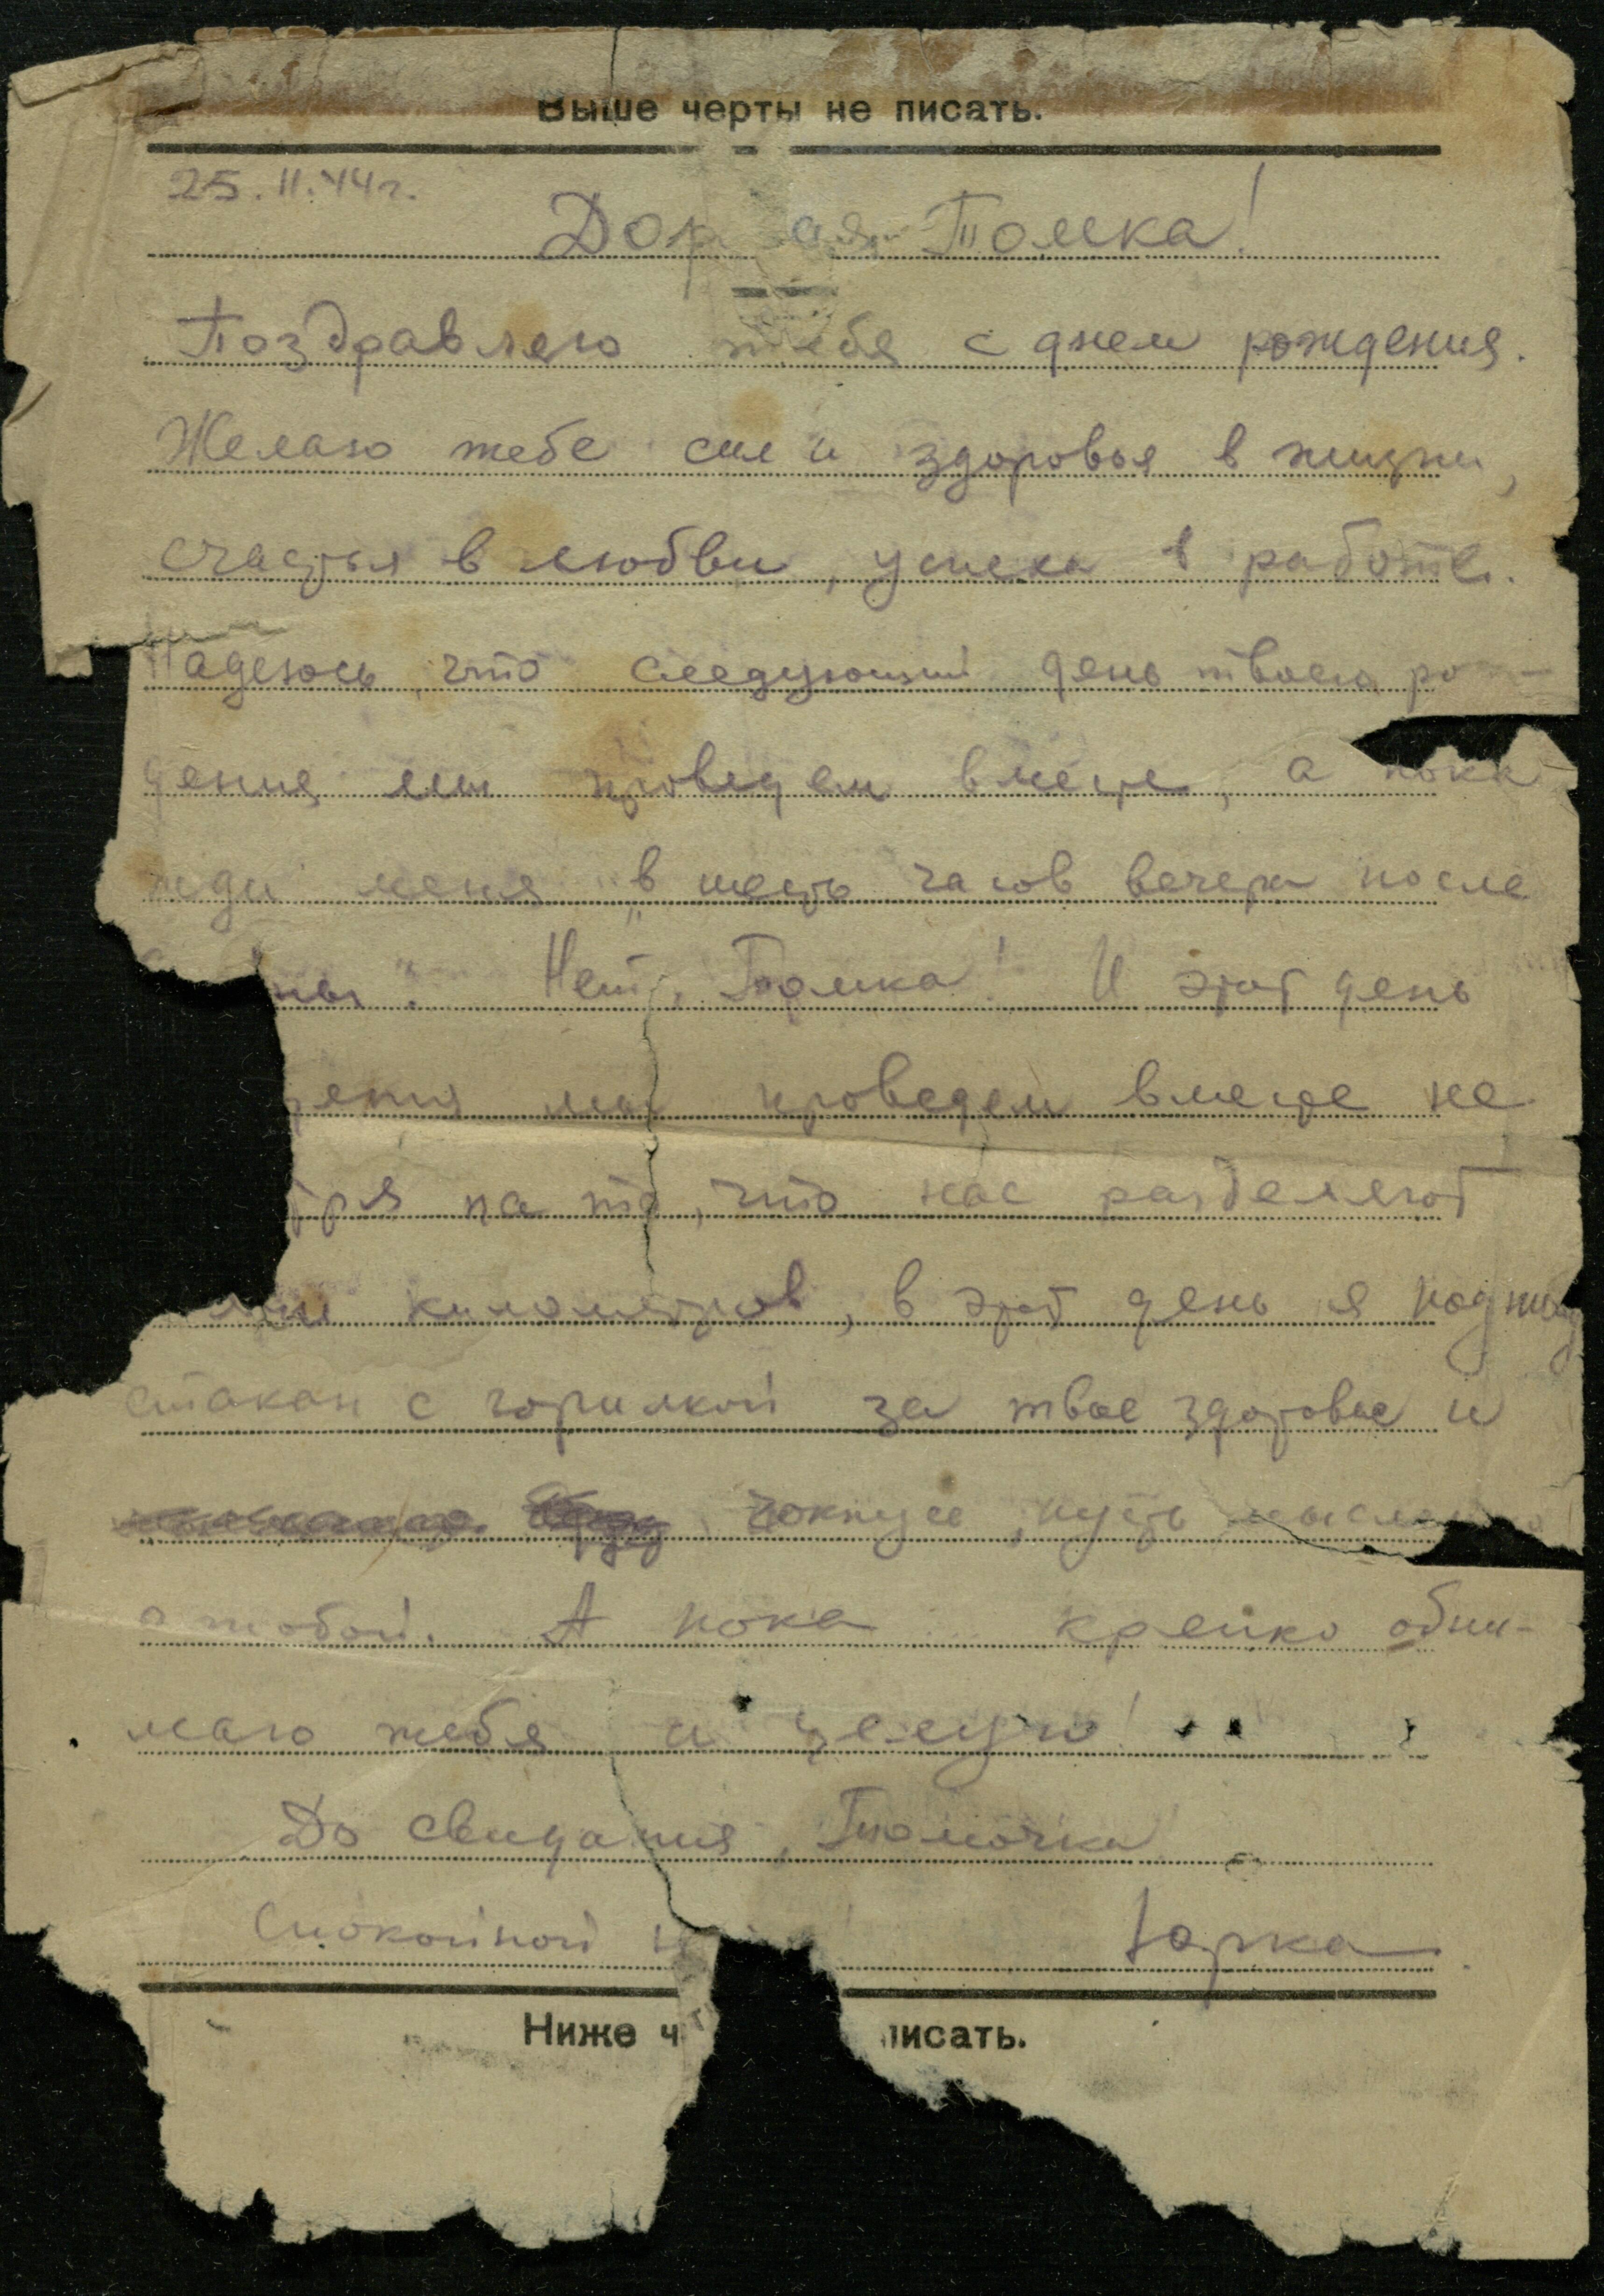 Выше черты не писать.
25.II.44г.
Дор ая Томка!
Поздравляю тебя с днем рождения.
Желаю тебе сил и здоровья в жизни,
счастья в любви, успеха в работе.
Надеюсь, что следующий день твоего ро
дения мы проведем вместе, а пока
жди меня „в шесть часов вечера после
ны". Нет, Томка! И этот день
дения мы проведем вместе не
тря на то, что нас разделяют
километров, в этот день я подниму
стакан с горилкой за твое здоровье и
буду чокнусь, пусть мысленно
с тобой. А пока крепко обни-
маю тебя и целую!
До свидания, Томочка
Спокойной н Юрка
Ниже ч писать.